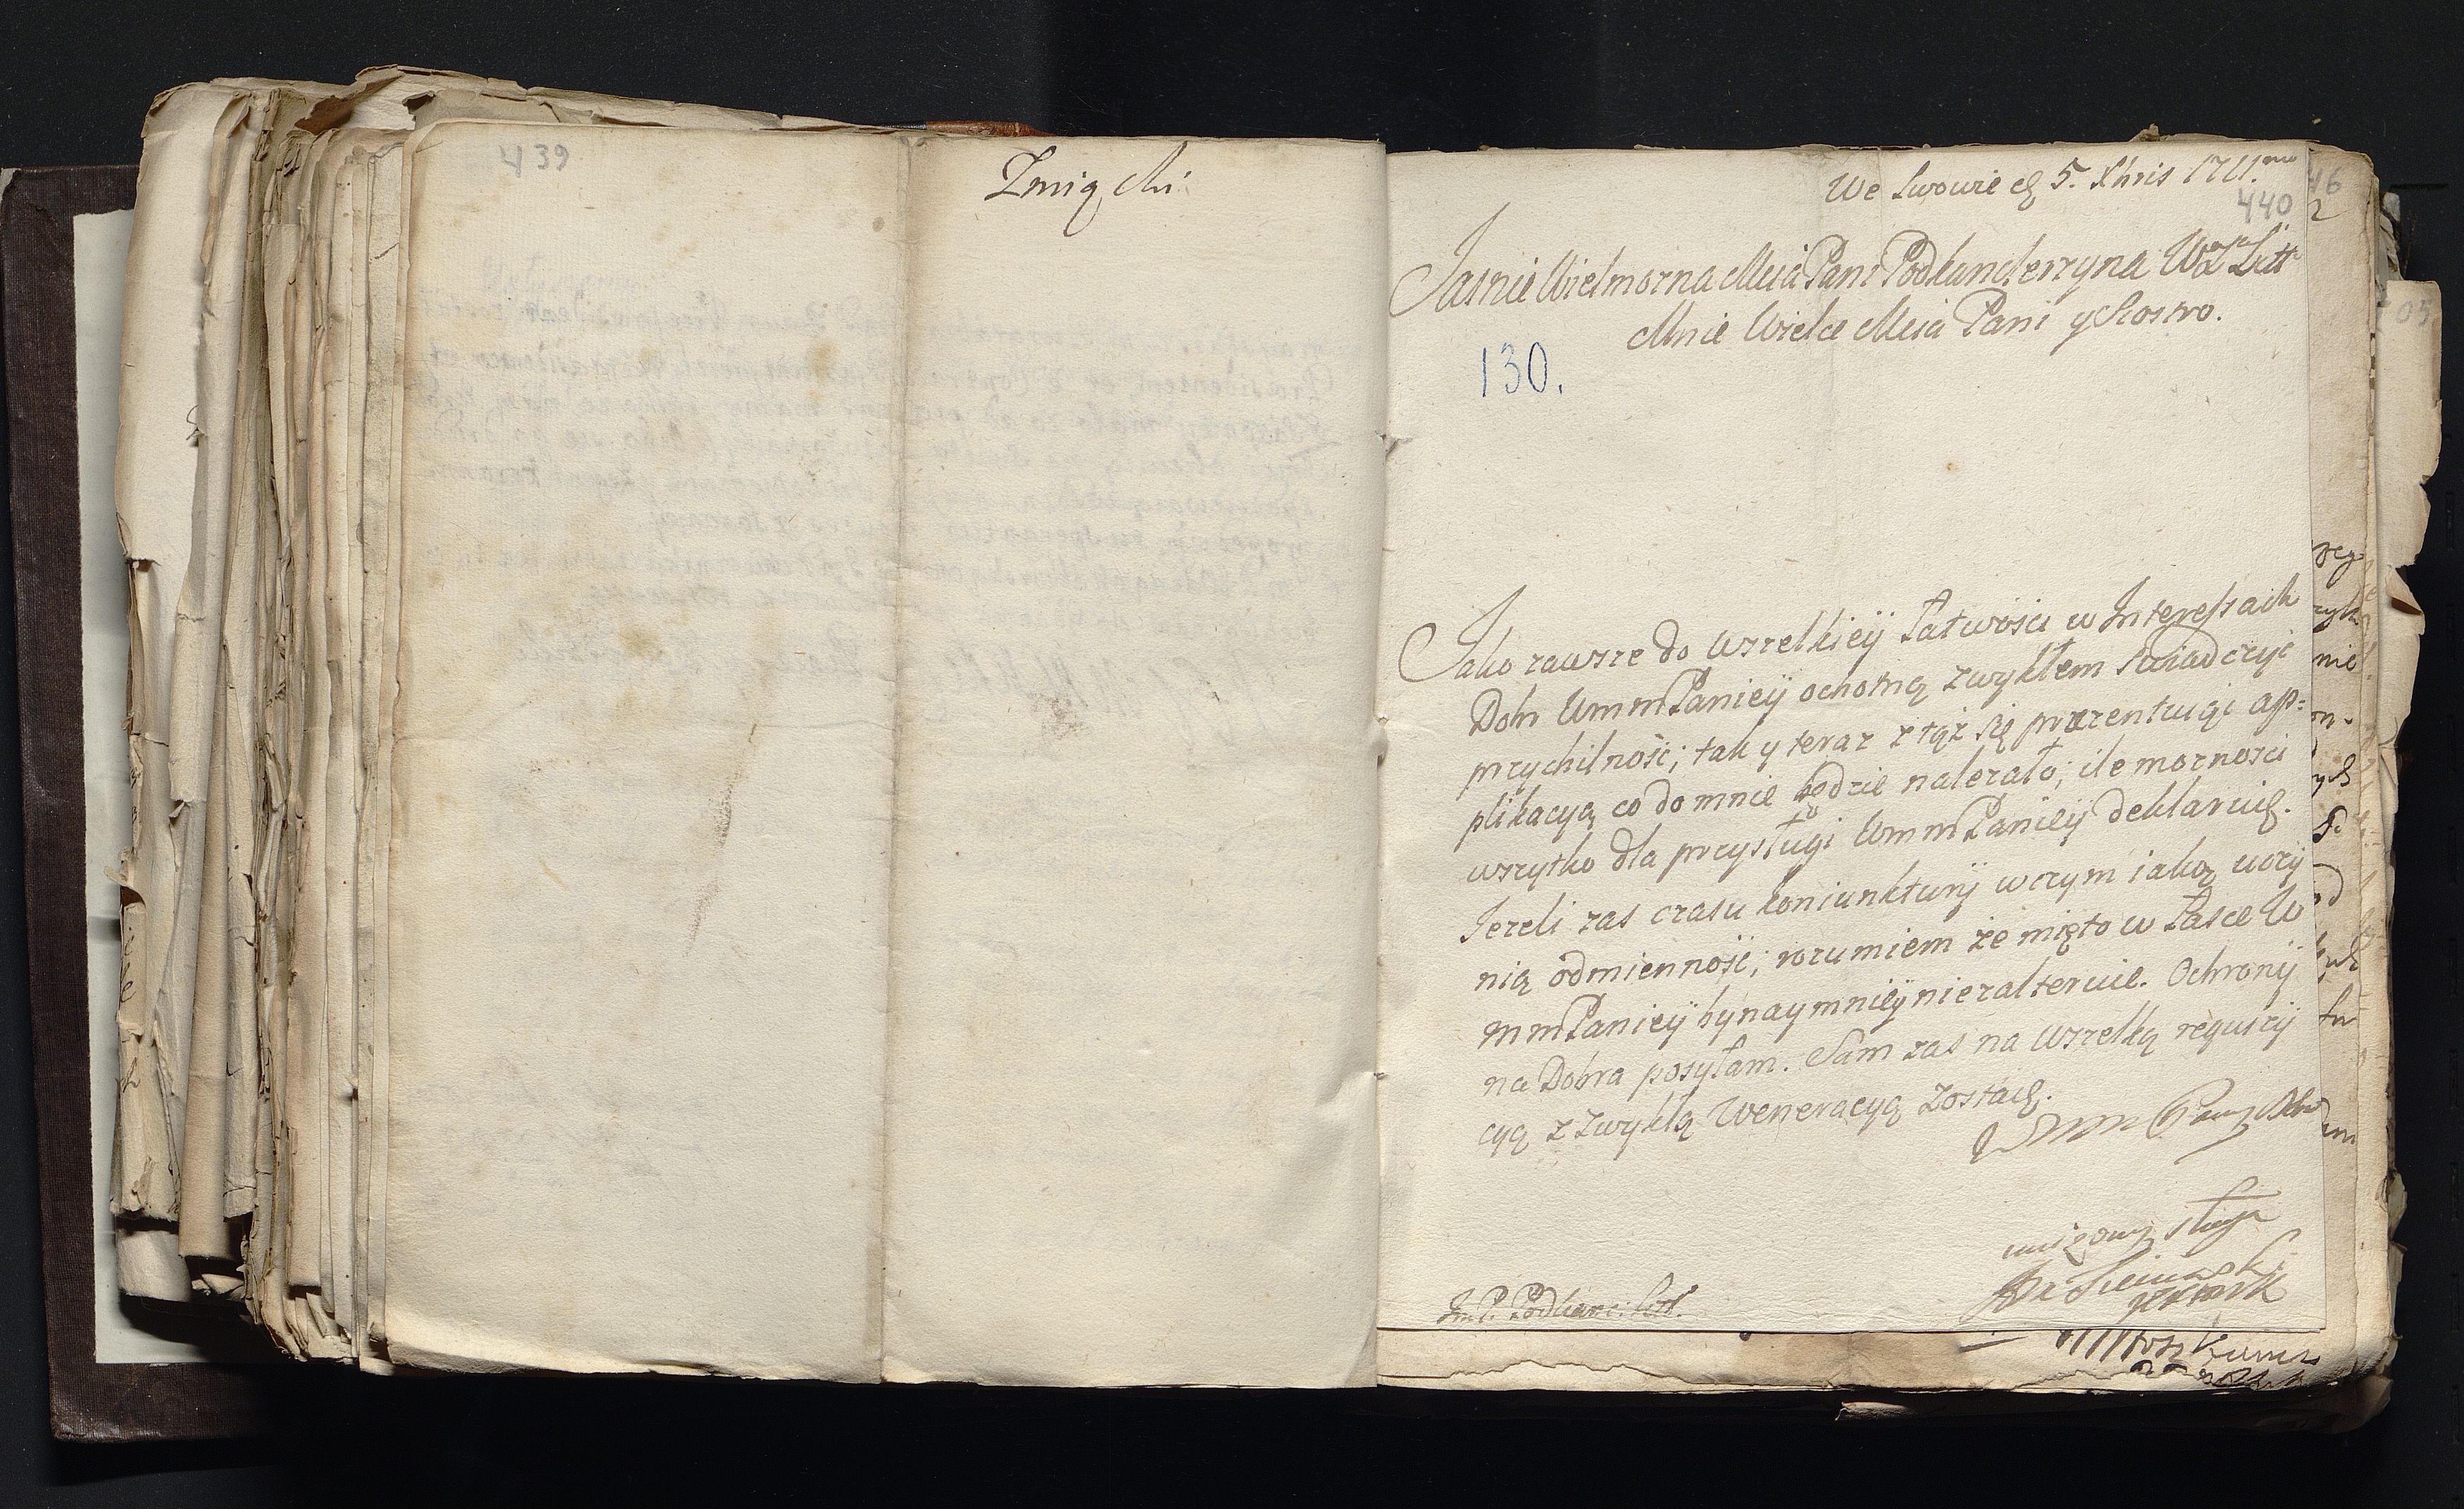 439
Zmigchi
We Lwowie d 5. Xbris 1711.mo
440
Jasnie Wielmozna Meia Pani Podkanclerzyna W X Litt
Mnie Wielce Meia Pani y Siostro.
130.
Jako zawsze do wszelkieÿ łatwości w Interessach
Dobr WmmPanieÿ ochotną zwykłem swiadczyć
przychilność; tak y teraz z tąż się prezentuię ap:
plikacyą co do mnie będzie nalezało; ile mozności
wszytko dla przysługi WmmPanieÿ deklaruię.
Jezeli zas czasu koniunkturÿ wczym iaką uczÿ
nią odmienność; rozumiem że mię to w łasce W
mmPanieÿ bynaymnieÿ niezalteruie. Ochronÿ
na Dobra posyłam. Sam zas na wszelką requizÿ
cyą z zwykłą Weneracyą zostaię.
unizony sługa
Jm P. Podkanc: Litt.